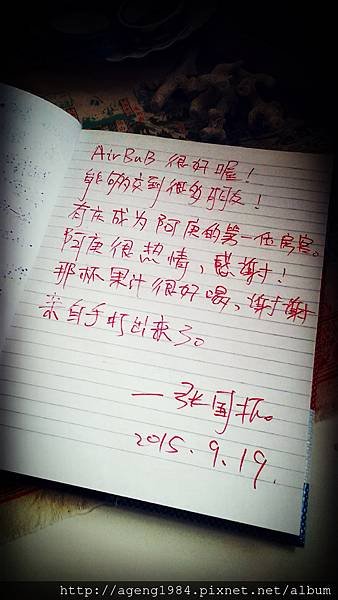 AirBnB 很好喔！
能够交到很多朋友！
有庆成为阿庚的第一位房客。
阿庚很热情、感谢！
那杯果汁很好喝、谢谢
亲自手打出来了。
一 张国
2015.9.19.
http://ageng1984.pixnet.net/album